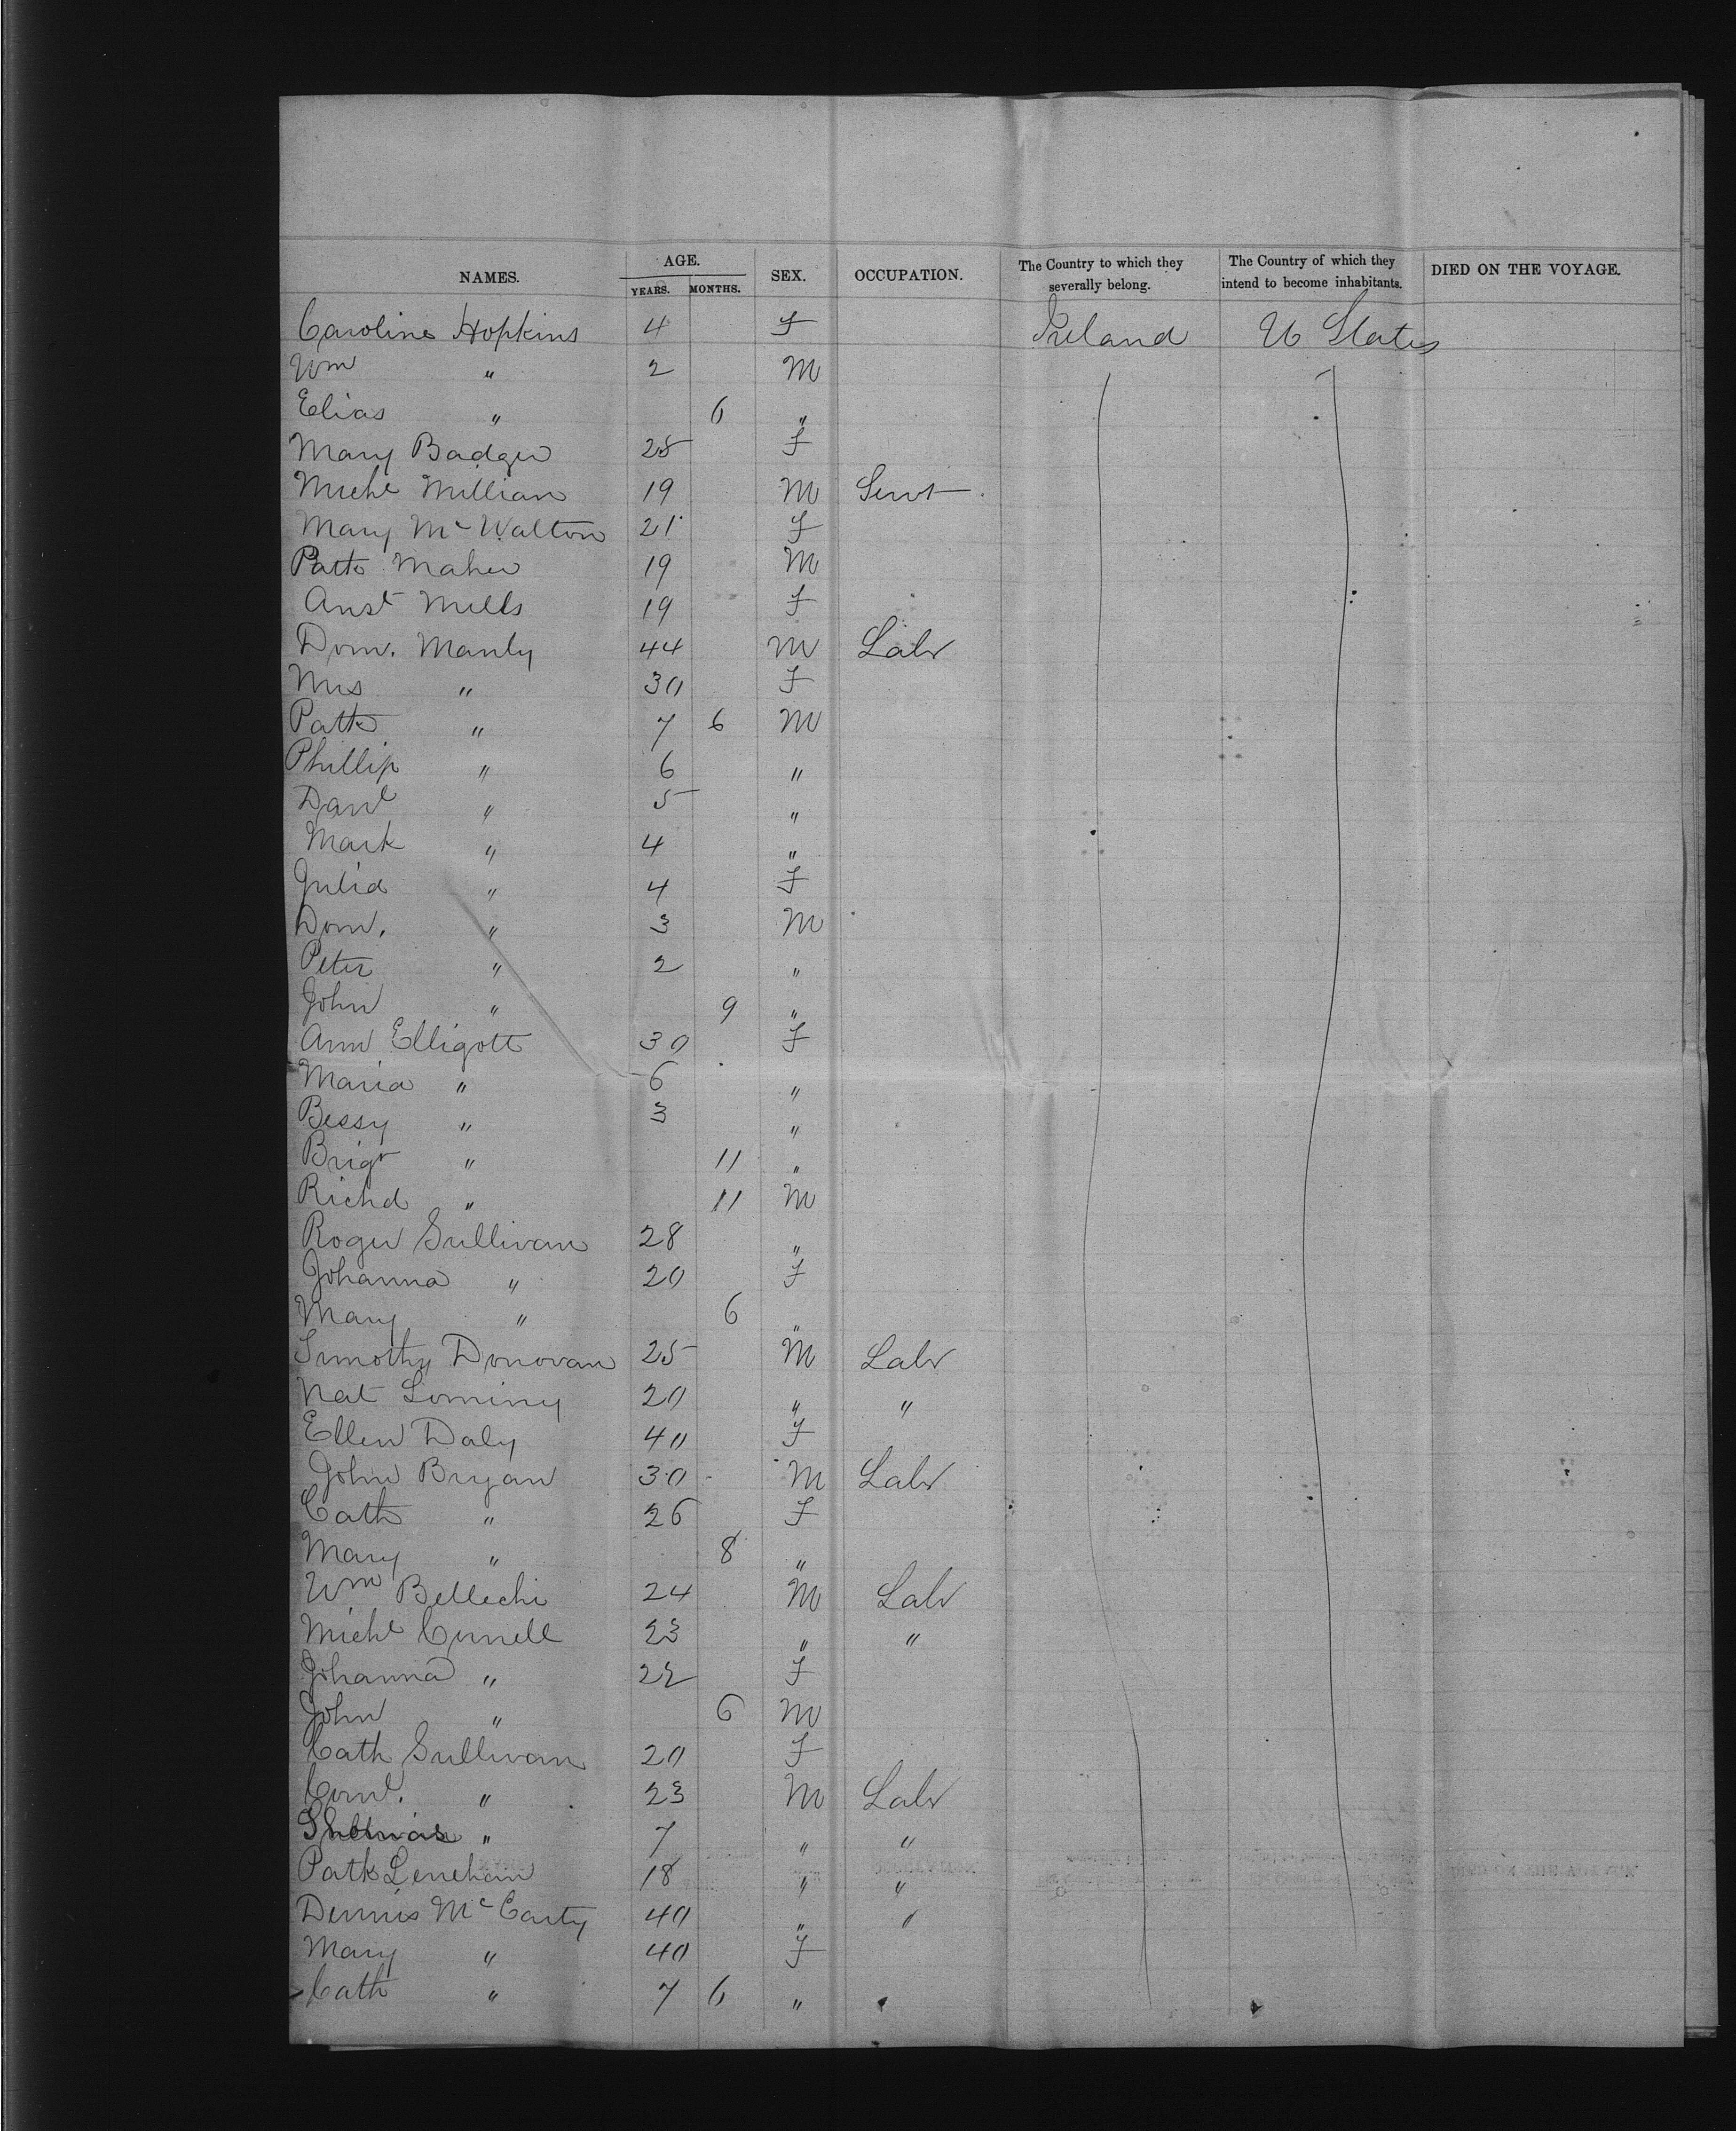 NAMES. AGE. YEARS. MONTHS. SEX. OCCUPATION. The Country to which they severally belong. The Country of which they intend to become inhabitants. DIED ON THE VOYAGE.
Caroline Hopkins 4 F Ireland U States
Wm " 2 M
Elias " 6 "
Mary Badger 25 F
Michl Millian 19 M Servt
Mary Mc Walton 21 F
Patk Maher 19 M
Anst Mills 19 F
Dom. Manly 44 M Labr
Mrs " 30 F
Patk " 7 6 M
Phillip " 6 "
Danl " 5 "
Mark " 4 "
Julia " 4 F
Dom. " 3 M
Peter " 2 "
John " 9 "
Ann Elligott 30 F
Maria " 6 "
Bessy " 3 "
Brigt " 11 "
Richd " 11 M
Roger Sullivan 28 "
Johanna " 20 F
Mary " 6 "
Timothy Donovan 25 M Labr
Nat 20 " "
Ellen Daly 40 F
John Bryan 30 M Labr
Cath " 26 F
Mary " 8 "
Wm Bellechi 24 M Labr
Michl 23 " "
Johanna " 22 F
John " 6 M
Cath Sullivan 20 F
Cornl. " 23 M Labr
" 7 " "
Patk Lenehan 18 " "
Dennis Mc Carty 40 " "
Mary " 40 F
Cath " 7 6 "